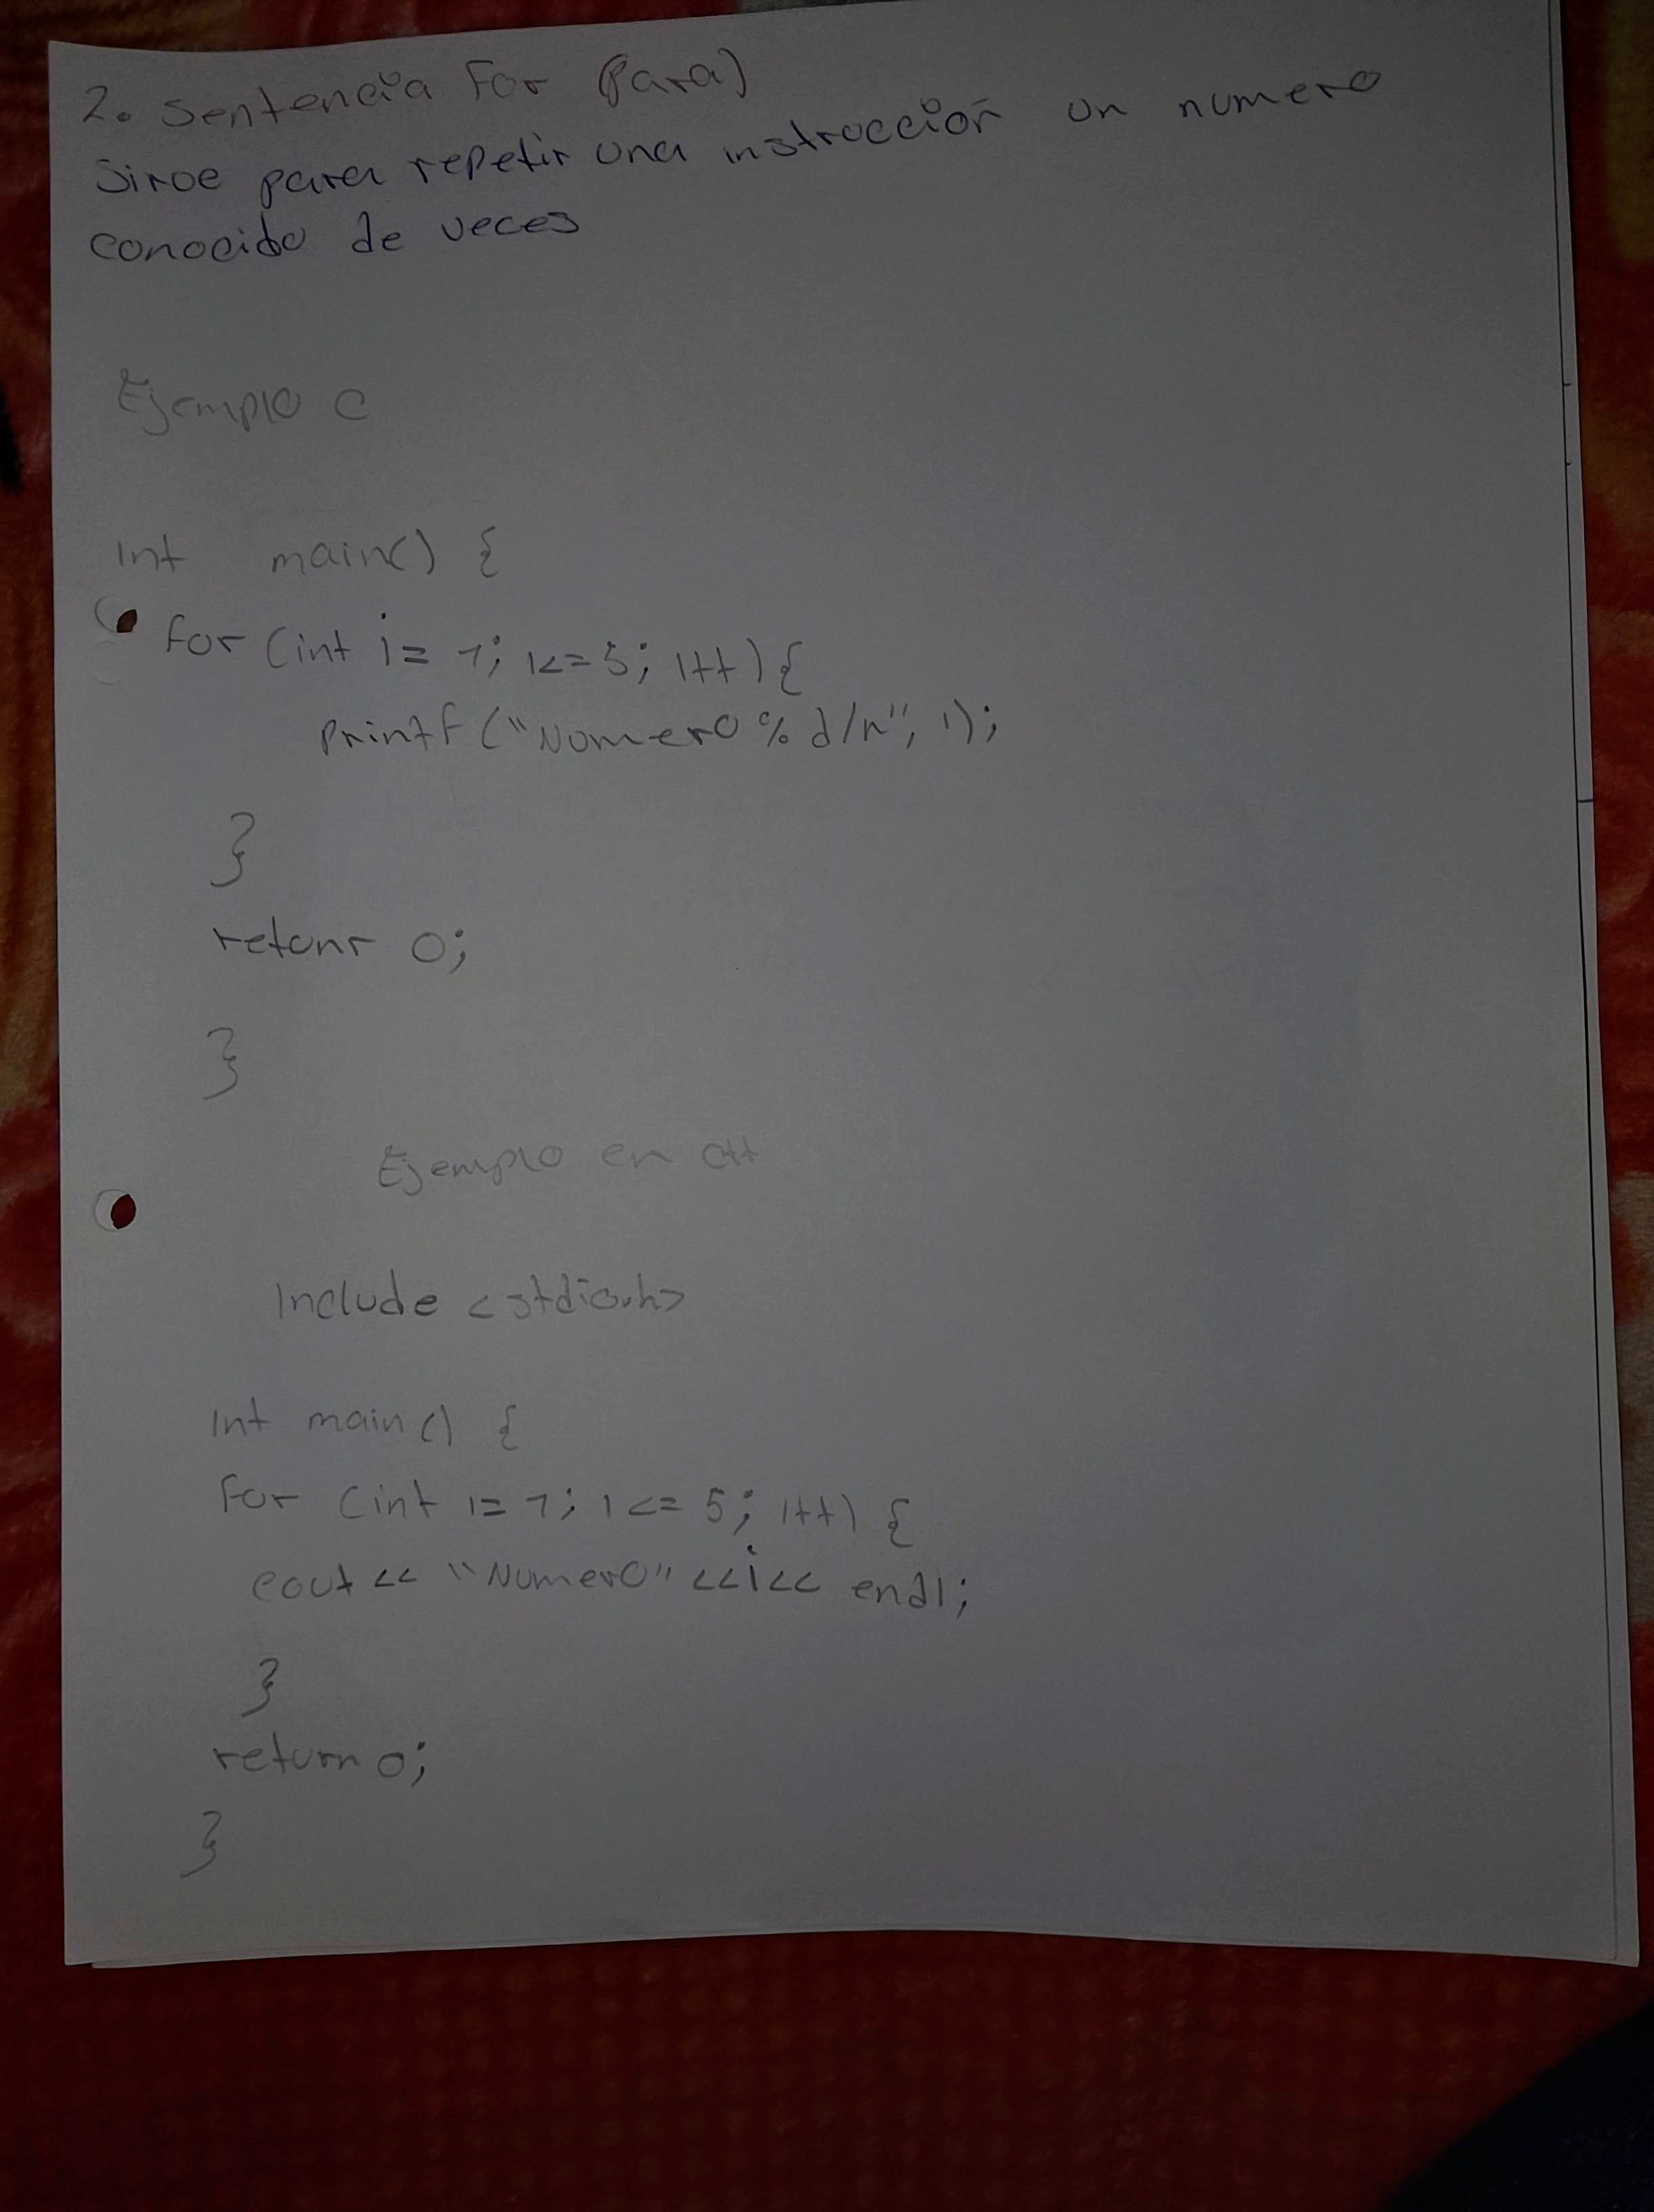 2. Sentencia For (Para)
Sirve para repetir una instrucción un numero
conocido de veces
Ejemplo C
int main() {
for (int i= 1; i<=5; i++) {
printf ("Numero %d/n", i);
}
retonr 0;
}
Ejemplo en c++
Include <stdio.h>
int main() {
for (int i= 1; i <= 5; i++) {
cout << "Numero" <<i<< endl;
}
return 0;
}